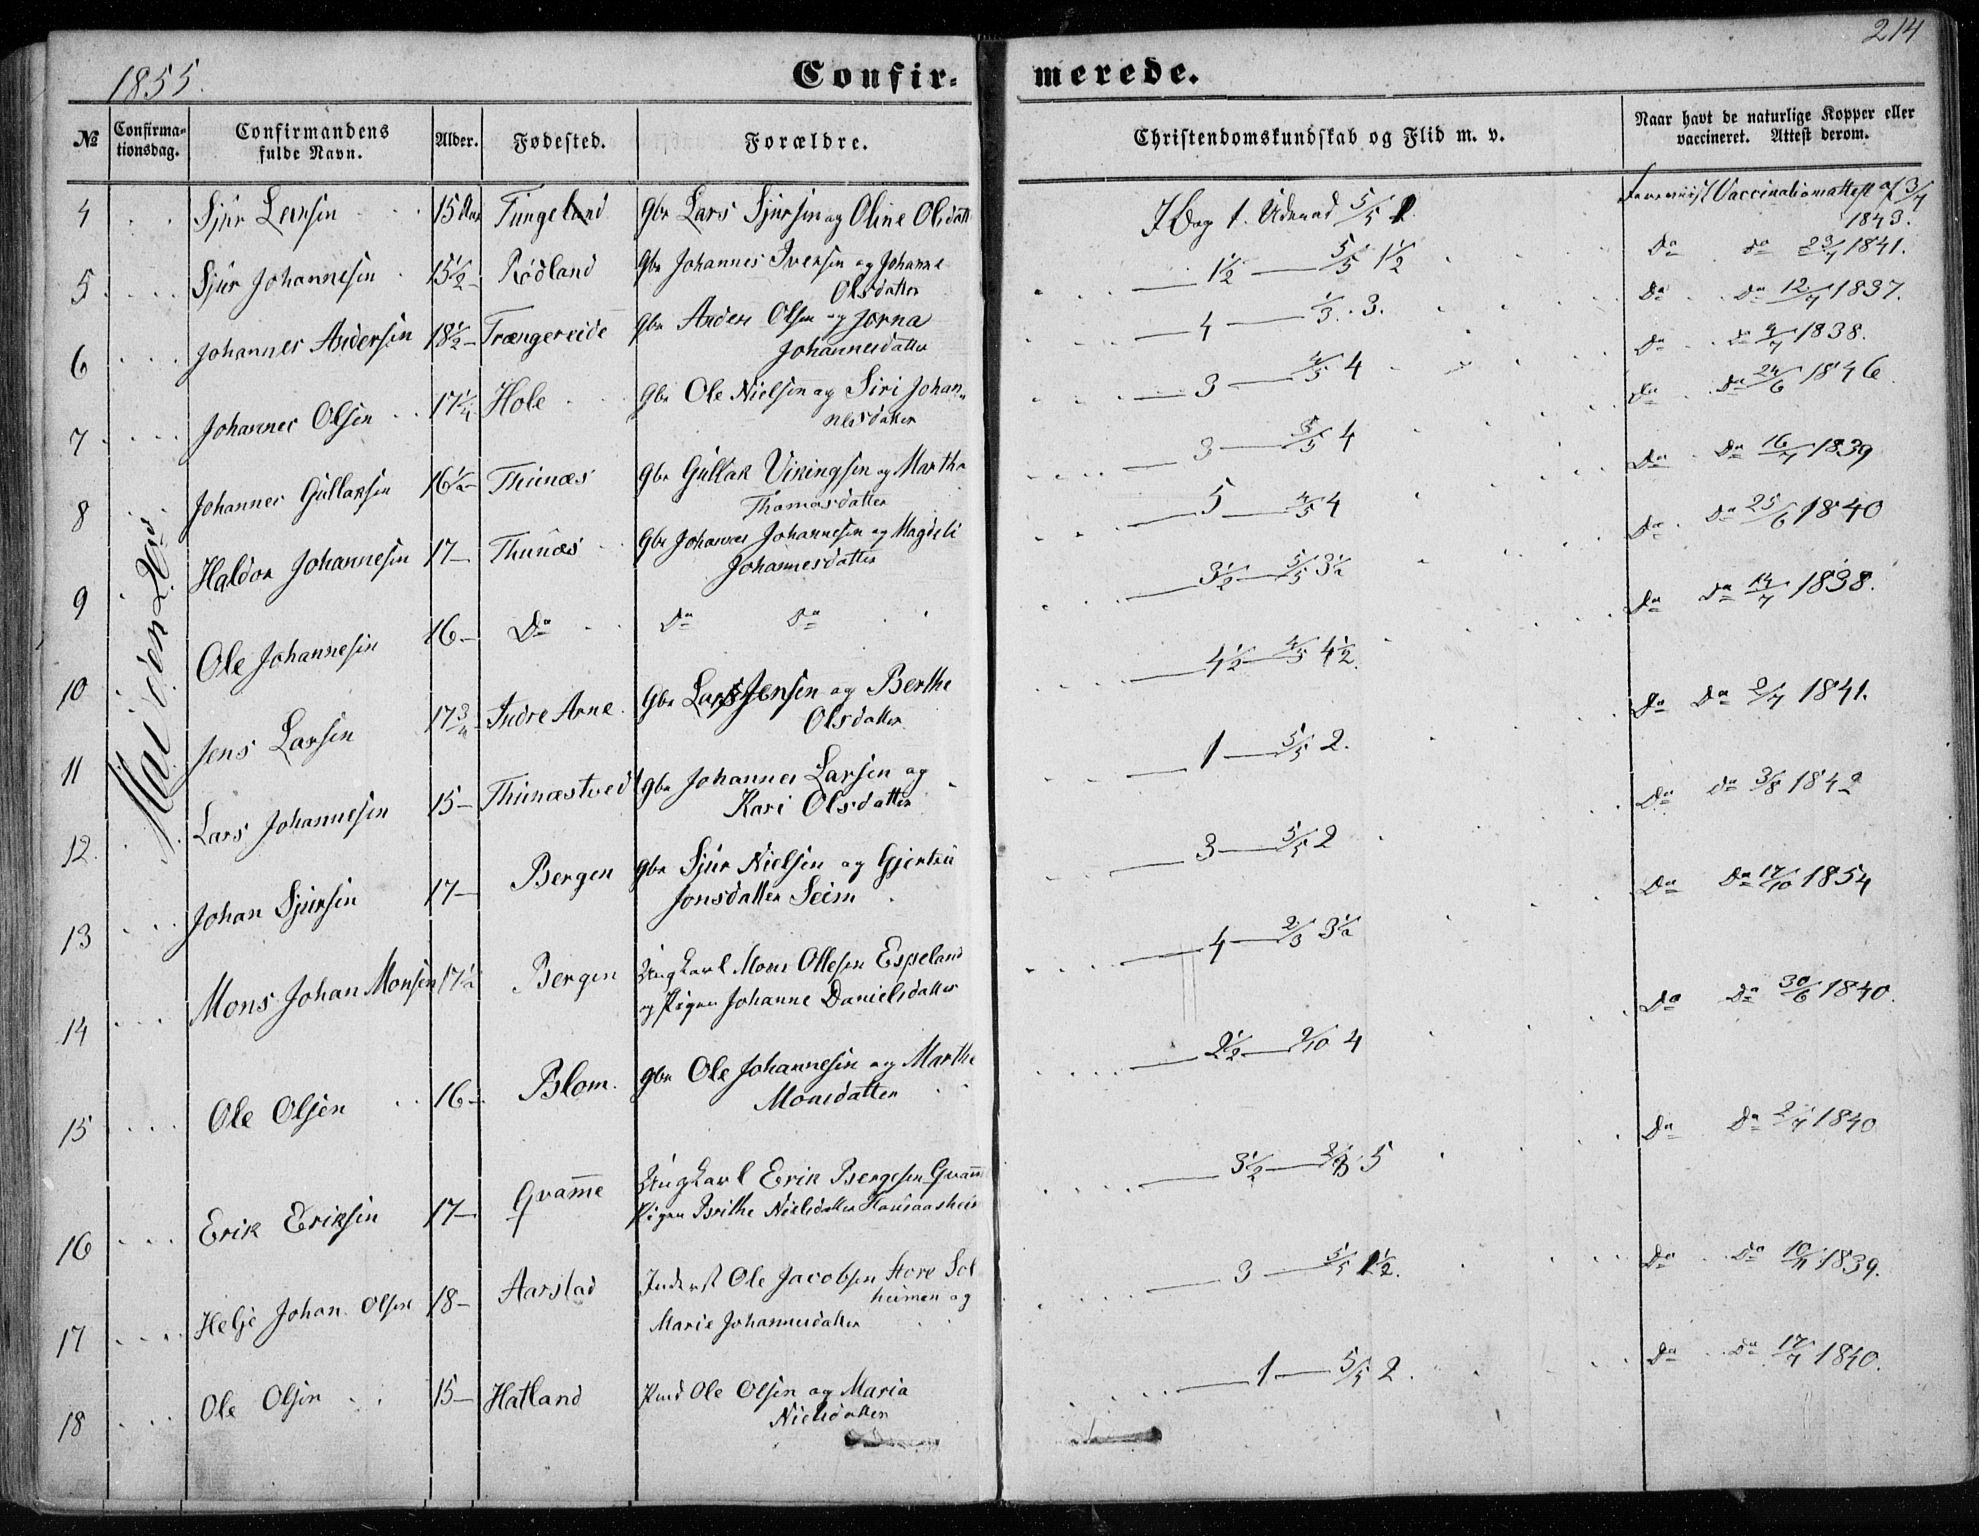 214
1855.
Confir- merede.
№ Confirma-tionsdag. Confirmandens fulde Navn. Alder. Fødested. Forældre. Christendomskundskab og Flid m. v. Naar havt de naturlige Kopper eller vaccineret. Attest derom.
Mai den 20de
4 Sjur Larsen 15 Aar Tungeland Gbr Lars Sjursen og Oline Olsdatt 1. Udenad 5/5 Vaccinationsattest af 3/7
1843.
5 Sjur Johannesen 15½ Rödland Gbr Johannes Iversen og Johanne 1½ 5/5 1½ Da da 23/7 1841.
Olsdatter
6 Johannes Andersen 18½ Trængereide Gbr Anders Olsen og Jorna 4 1/3 3. Da Da 12/7 1837.
Johannesdatter
7 Johannes Olsen 17¼ Hole Gbr Ole Nielsen og Siri Johan- 3 4/5 4 Da Da 4/7 1838.
nesdatter
8 Johannes Gullaksen 16½ Thunæs Gbr Gullak Vikingsen og Martha 3 3/5 4 Da Da 24/6 1846
Thomasdatter
9 Haldor Johannesen 17 Thunæs Gbr Johannes Johannesen og Magdeli 5 4/5 4 Da Da 16/7 1839
Johannesdatter
10 Ole Johannesen 16 Da Da Da 3½ 5/5 3½ Da Da 25/6 1840
11 Jens Larsen 17¾ Indre Arne Gbr Lars Jensen og Berthe 4½ 4/5 4½ Da Da 14/7 1838.
Olsdatter
12 Lars Johannesen 15 Thunæstvedt Gbr Johannes Larsen og 1 5/5 2. Da Da 9/7 1841.
Kari Olsdatter
13 Johan Sjursen 17 Bergen Gbr Sjur Nielsen og Gjertru 3 5/5 2 Da Da 3/8 1842
Jonsdatter Seim
14 Mons Johan Monsen 17½ Bergen Ungkarl Mons Ollesen Espeland 4 2/3 3½ Da Da 17/10 1854
og Pigen Johanne Danielsdatter
15 Ole Olsen 16 Blom. Gbr Ole Johannesen og Marthe 2½ 9/10 4 Da Da 30/6 1840.
Monsdatter
16 Erik Eriksen 17 Gvam̅e Ungkarl Erik Bergesen Gvam̅ 3½ 5 Da Da 2/7 1840
Pigen Brithe Nielsdatter
17 Helje Johan Olsen 18 Aarstad Inderst Ole Jacobsen Store Sol 3 5/5 1½. Da Da 10/11 1839.
heimen og
Marie Johannesdatter
18 Ole Olsen 15 Hatland Ole Olsen og Maria 1 5/5 2. Da Da 17/7 1840.
Nielsdatter